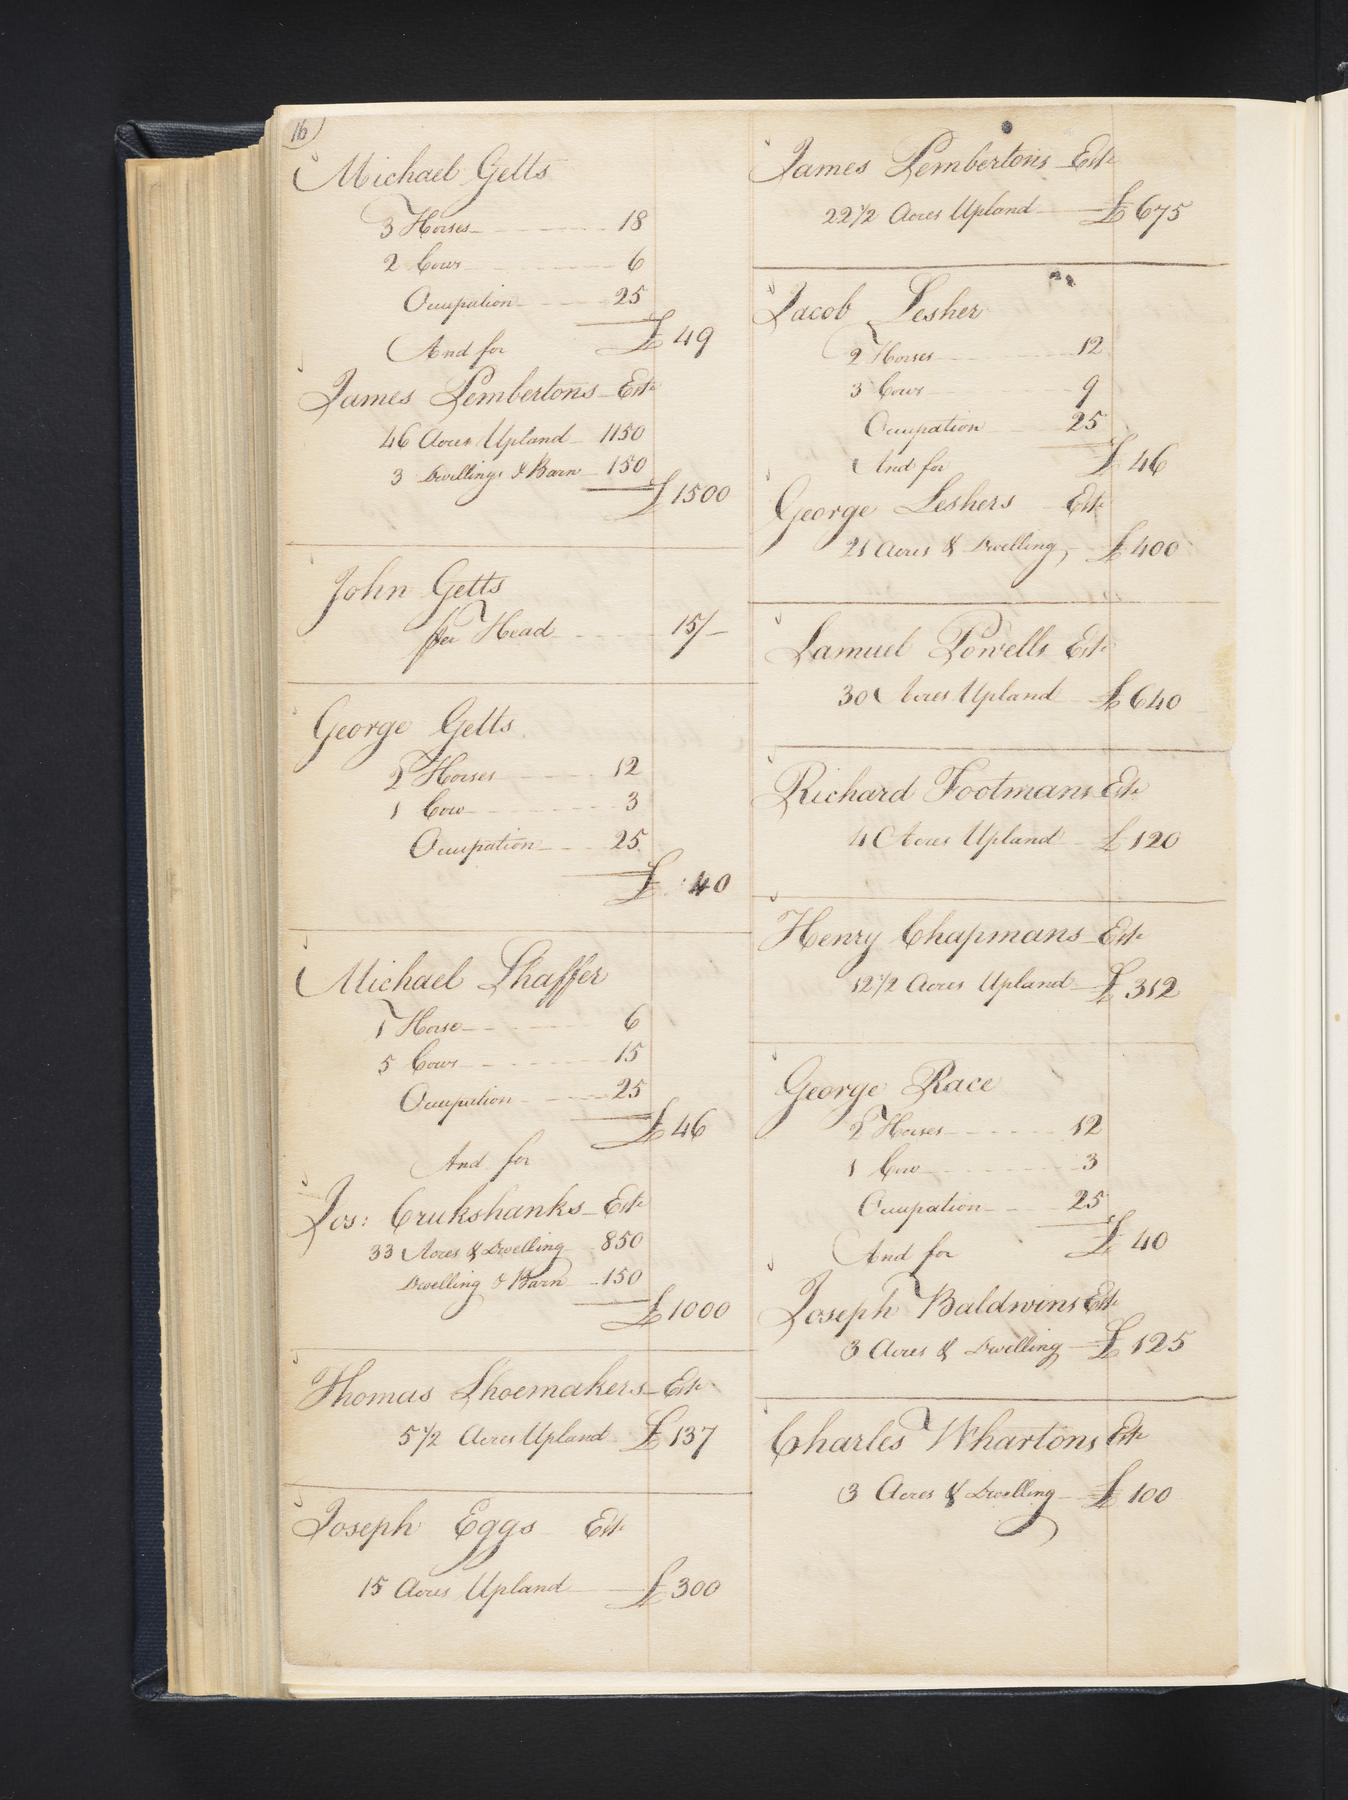 16)
Michael Getts
3 Horses 18
2 Cows 6
Occupation 25
£ 49
And for
James Pembertons Este
46 Acres Upland 1150
3 Dwellings & Barn 150
£ 1500
John Getts
per Head 15/-
George Getts
2 Horses 12
1 Cow 3
Occupation 25
£ 40
Michael Shaffer
1 Horse 6
5 Cows 15
Occupation 25
£ 46
And for
Jos: Crukshanks Este
33 Acres & Dwelling 850
Dwelling & Barn 150
£ 1000
Thomas Shoemakers Este
5 1/2 Acres Upland £ 137
Joseph Eggs Este
15 Acres Upland £ 300
James Pembertons Este
22 1/2 Acres Upland £ 675
Jacob Lesher
2 Horses 12
3 Cows 9
Occupation 25
£ 46
And for
George Leshers Este
21 Acres & Dwelling £ 400
Samuel Powells Este
30 Acres Upland £ 640
Richard Footmans Este
4 Acres Upland £ 120
Henry Chapmans Este
12 1/2 Acres Upland £ 312
George Race
2 Horses 12
1 Cow 3
Occupation 25
£ 40
And for
Joseph Baldwins Este
3 Acres & Dwelling £ 125
Charles Whartons Este
3 Acres & Dwelling £ 100